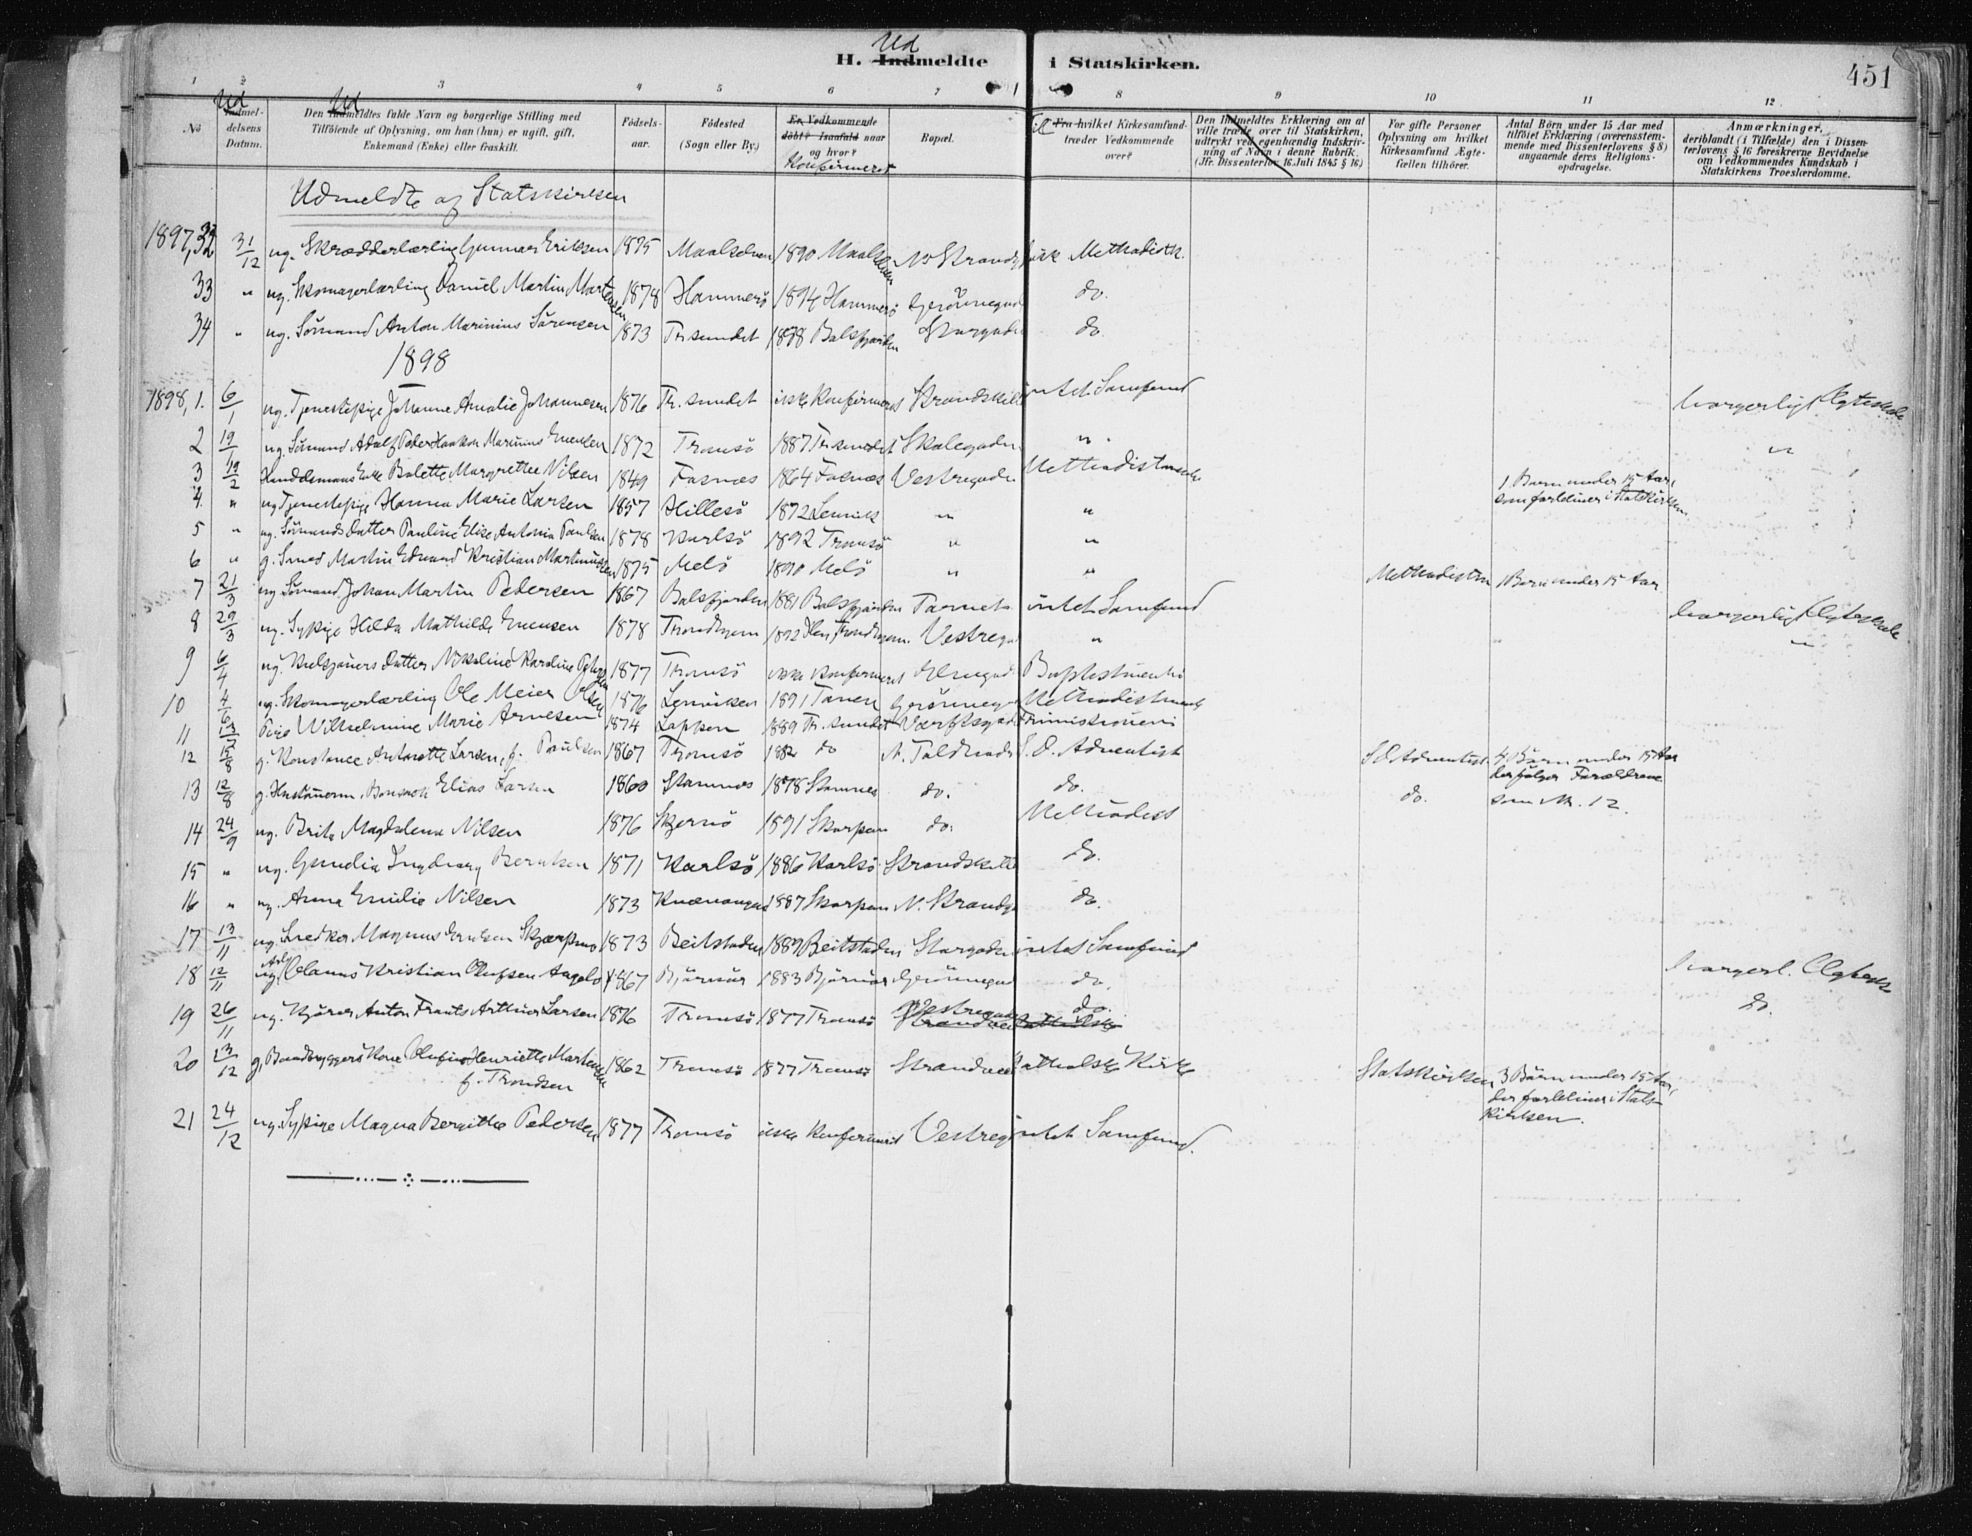 H. Indmeldte i Statskirken.
Ud
451
1 2 3 4 5 6 7 8 9 10 11 12
No
Ud
Indmel-
delsens
Datum.
Ud
Den Indmeldtes fulde Navn og borgerlige Stilling med
Tilföiende af Oplysning, om han (hun) er ugift, gift,
Enkemand (Enke) eller fraskilt.
Födsels-
aar.
Födested
(Sogn eller By.)
Er Vedkommende
döbt? Isaafald naar
og hvor?
Konfirmeret
Bopæl.
til
Fra hvilket Kirkesamfund
træder Vedkommende
over?
Den Indmeldtes Erklæring om at
ville træde over til Statskirken,
udtrykt ved egenhændig Indskriv-
ning af Navn i denne Rubrik.
(Jfr. Dissenterlov 16 Juli 1845 § 16)
For gifte Personer
Oplysning om hvilket
Kirkesamfund Ægte-
fællen tilhörer.
Antal Börn under 15 Aar med
tilföiet Erklæring (overensstem-
mende med Dissenterlovens § 8)
angaaende deres Religions-
opdragelse.
Anmærkninger,
deriblandt (i Tilfælde) den i Dissen-
terlovens § 16 foreskrevne Bevidnelse
om Vedkommendes Kundskab i
Statskirkens Troeslærdomme.
Udmeldte af Statskirken
1897, 32 31/12 ug. Skrædderlærling Gunnar Eriksen 1875 Maalselven 1890 Maalselven N. Strandg Methodistk.
33 " ug. Skomagerlærling Daniel Martin Martensen 1878 Hammerö 1894 Hammerö Grönnegad do.
34 " ug. Sömand Anton Marinius Sörensen 1873 Tr.sundet Balsfjorden Storgaden do.
1898
1898, 1. 6/1 ug. Tjenestepige Johanne Amalie Johannesen 1876 Tr.sundet ikke Konfirmeret Strandskill intet Samfund borgerligt Ægteskab
2 19/1 ug. Sömand Adolf Peder Haakon Marinius Enensen 1872 Tromsö 1887 Tr.sundet Skolegaden " "
3 12/2 Enke Bolette Margrethe Nilsen 1849 Fasnæs 1864 Fasnæs Vestregaden Methodisternes 1 Barn under 15 Aar,
som forbliver i Statskirken.
4. " ug Tjenestepige Hanna Marie Larsen 1857 Hillesö 1872 Lenvik " "
5 " ug. Sömands Datter Pauline Elise Antonia Paulsen 1878 Karlsö 1892 Tromsö " "
6 " g. Smed Martin Edvard Kristian Martinussen 1875 Melö 1890 Melö " " Methodistern 1 Barn under 15 Aar
7 21/3 ug Sömand Johan Martin Pedersen 1867 Balsfjorden 1881 Balsfjorden Tarnet intet Samfund borgerligt Ægteskab
8 29/3 ug. Sypige Hilda Mathilde Enensen 1878 Trondhjem 1892 Trondhjem Vestrega " "
9 6/4 ug. Datter Nikoline Karoline 1877 Tromsö ikke Konfirmeret Baptistmenti
10 4/6 ug. Skomagerlærling Ole Meier Olsen 1876 Lenviken 1891 Tanen Grönnega Methodistmenti
11 13/7 Pige Wilhelmine Marie Arnesen 1874 Lappen 1889 Tr.sundet Værftsgad Frimissioneri
12 15/8 g. Konstance Antonette Larsen, f. Paulsen 1867 Tromsö 1882 do N. Toldbods S.D. Adventist S D Adventist 4 Börn under 15 Aar
der fölger Forældrene
13 12/8 g. Elias Larsen 1860 Stamnes 1878 Stamnes do. do. do. som No. 12.
14 24/9 ug. Brita Magdalena Nilsen 1876 Skjervö 1891 Skorpen do. Methodist
15 " ug. Gundia Ingeborg Berntsen 1871 Karlsö 1886 Karlsö Strandskill do.
16 " ug. Anna Emilie Nilsen 1873 Kvænangen 1887 Skorpen N. Strandga do.
17 13/11 ug. Snedker Magnus Skjærpmo 1873 Beitstaden 1889 Beitstaden Storgaden intet Samfund
18 12/11 ug. Olaus Kristian Olufsen Angelo 1867 Bjarnör 1883 Bjarnör Grönnegad do. borgerl. Ægtesk
19 26/11 ug. Kjörer Anton Frants Arthur Larsen 1876 Tromsö 1877 Tromsö Vestregad do. do.
20 13/12 g. Baadbyggers Kone Olufine Henriette Martensen
f. Trondsen 1862 Tromsö 1877 Tromsö Strandvei Catholsk Kirke Statskirken 3 Börn under 15 Aar,
der forbliver i Stats-
kirken.
21 24/12 ug. Sypige Magna Bergitte Pedersen 1877 Tromsö ikke Konfirmeret Vestreg intet Samfund.